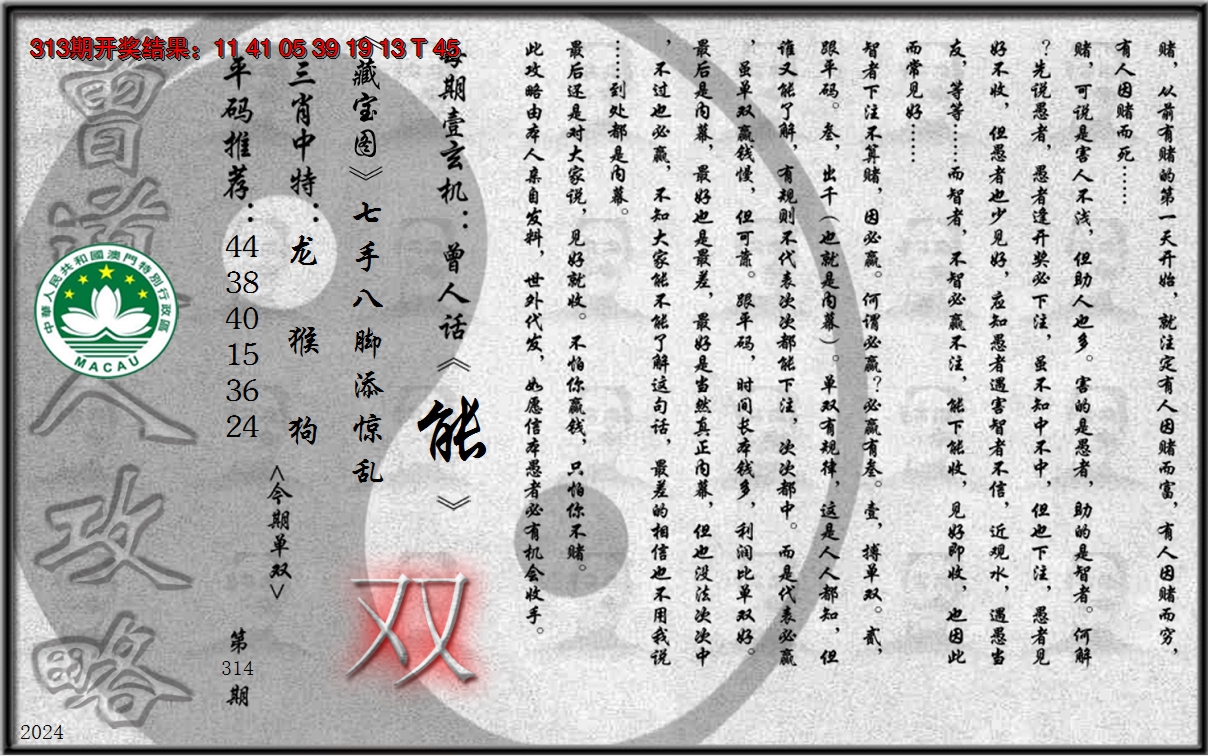 313期开奖结果：11 41 05 39 19 13 T 45
赌，从前有赌的第一天开始，就注定有人因赌而富，有人因赌而穷，
有人因赌而死……
赌，可说是害人不浅，但助人也多。害的是愚者，助的是智者。何解
？先说愚者，愚者逢开奖必下注，虽不知中不中，但也下注，愚者见
好不收，但愚者也少见好，应知愚者遇害智者不信，近观水，遇愚当
友，等等……而智者，不智必赢不注，能下能收，见好即收，也因此
而常见好……
智者下注不算赌，因必赢。何谓必赢？必赢有叁。壹，搏单双。贰，
跟平码。叁，出千（也就是内幕）。单双有规律，这是人人都知，但
谁又能了解，有规则不代表次次都能下注，次次都中。而是代表必赢
，虽单双赢钱慢，但可靠。跟平码，时间长本钱多，利润比单双好。
最后是内幕，最好也是最差，最好是当然真正内幕，但也没法次次中
，不过也必赢，不知大家能不能了解这句话，最差的相信也不用我说
……到处都是内幕。
最后还是对大家说，见好就收。不怕你赢钱，只怕你不赌。
此攻略由本人亲自发料，世外代发，如愿信本愚者必有机会收手。
每期壹玄机：曾人话《能》
《藏宝图》七手八脚添惊乱
双
三肖中特：龙 猴 狗
<今期单双>
平码推荐：44 38 40 15 36 24
第314期
曾道人攻略
中華人民共和國澳門特別行政區
MACAU
2024